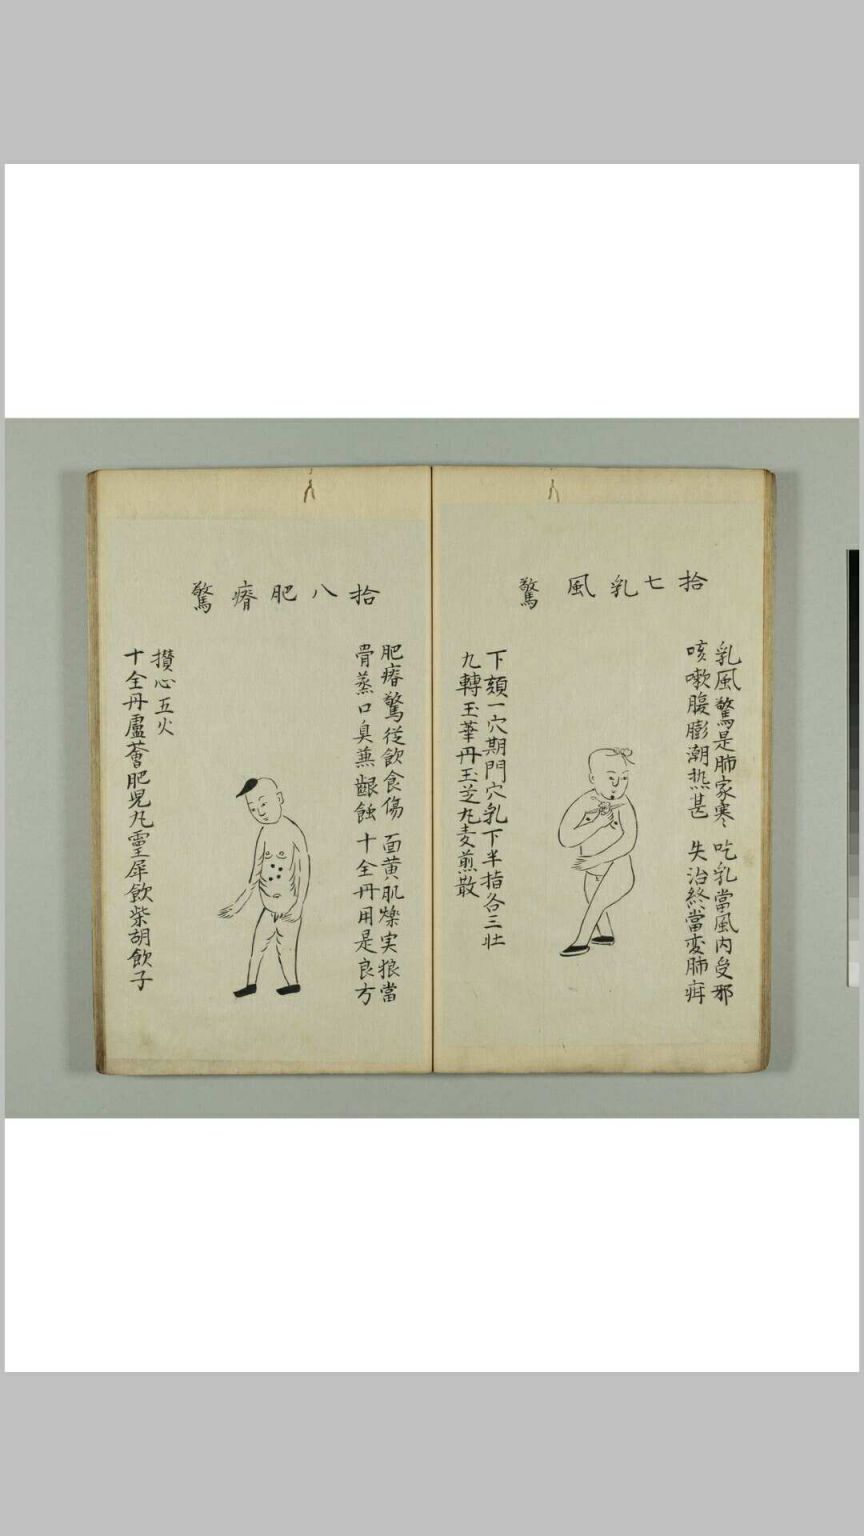 拾七乳風驚
乳風驚是肺家寒　吃乳當風內受邪
咳嗽腹膨潮热甚　失治終當変肺疳
下頦一穴期門穴乳下半指各三壯
九轉玉華丹玉芝丸麦煎散
拾八肥瘠驚
肥瘠驚從飲食傷　面黄肌燥実狼當
骨蒸口臭蕪齦蝕　十全丹用是良方
攅心五火
十全丹盧薈肥児丸靈犀飲柴胡飲子